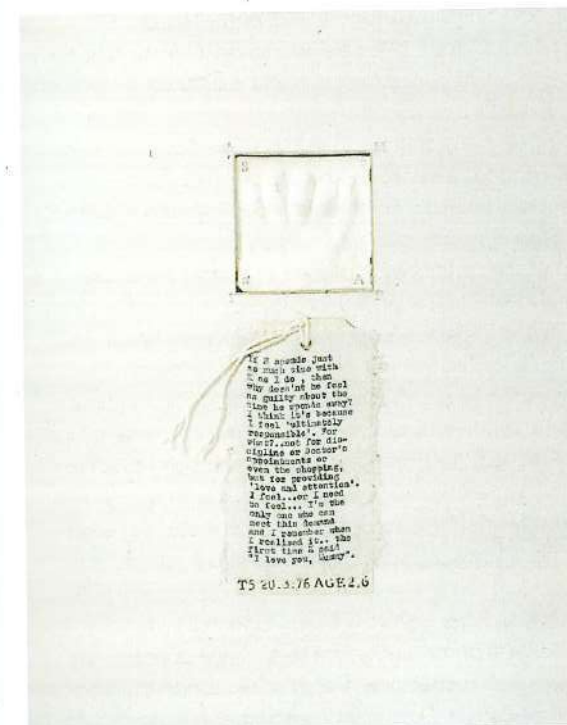 If R spends just
as much time with
K as I do , then
why doesn't he feel
as guilty about the
time he spends away?
I think it's because
I feel 'ultimately
responsible'. For
what?..not for dis-
cipline or Doctor's
appointments or
even the shopping,
but for providing
'love and attention'.
I feel...or I need
to feel... I'm the
only one who can
meet this demand
and I remember when
I realised it.. the
first time K said
"I love you, Mummy".
T5 20.3.76 AGE 2.6